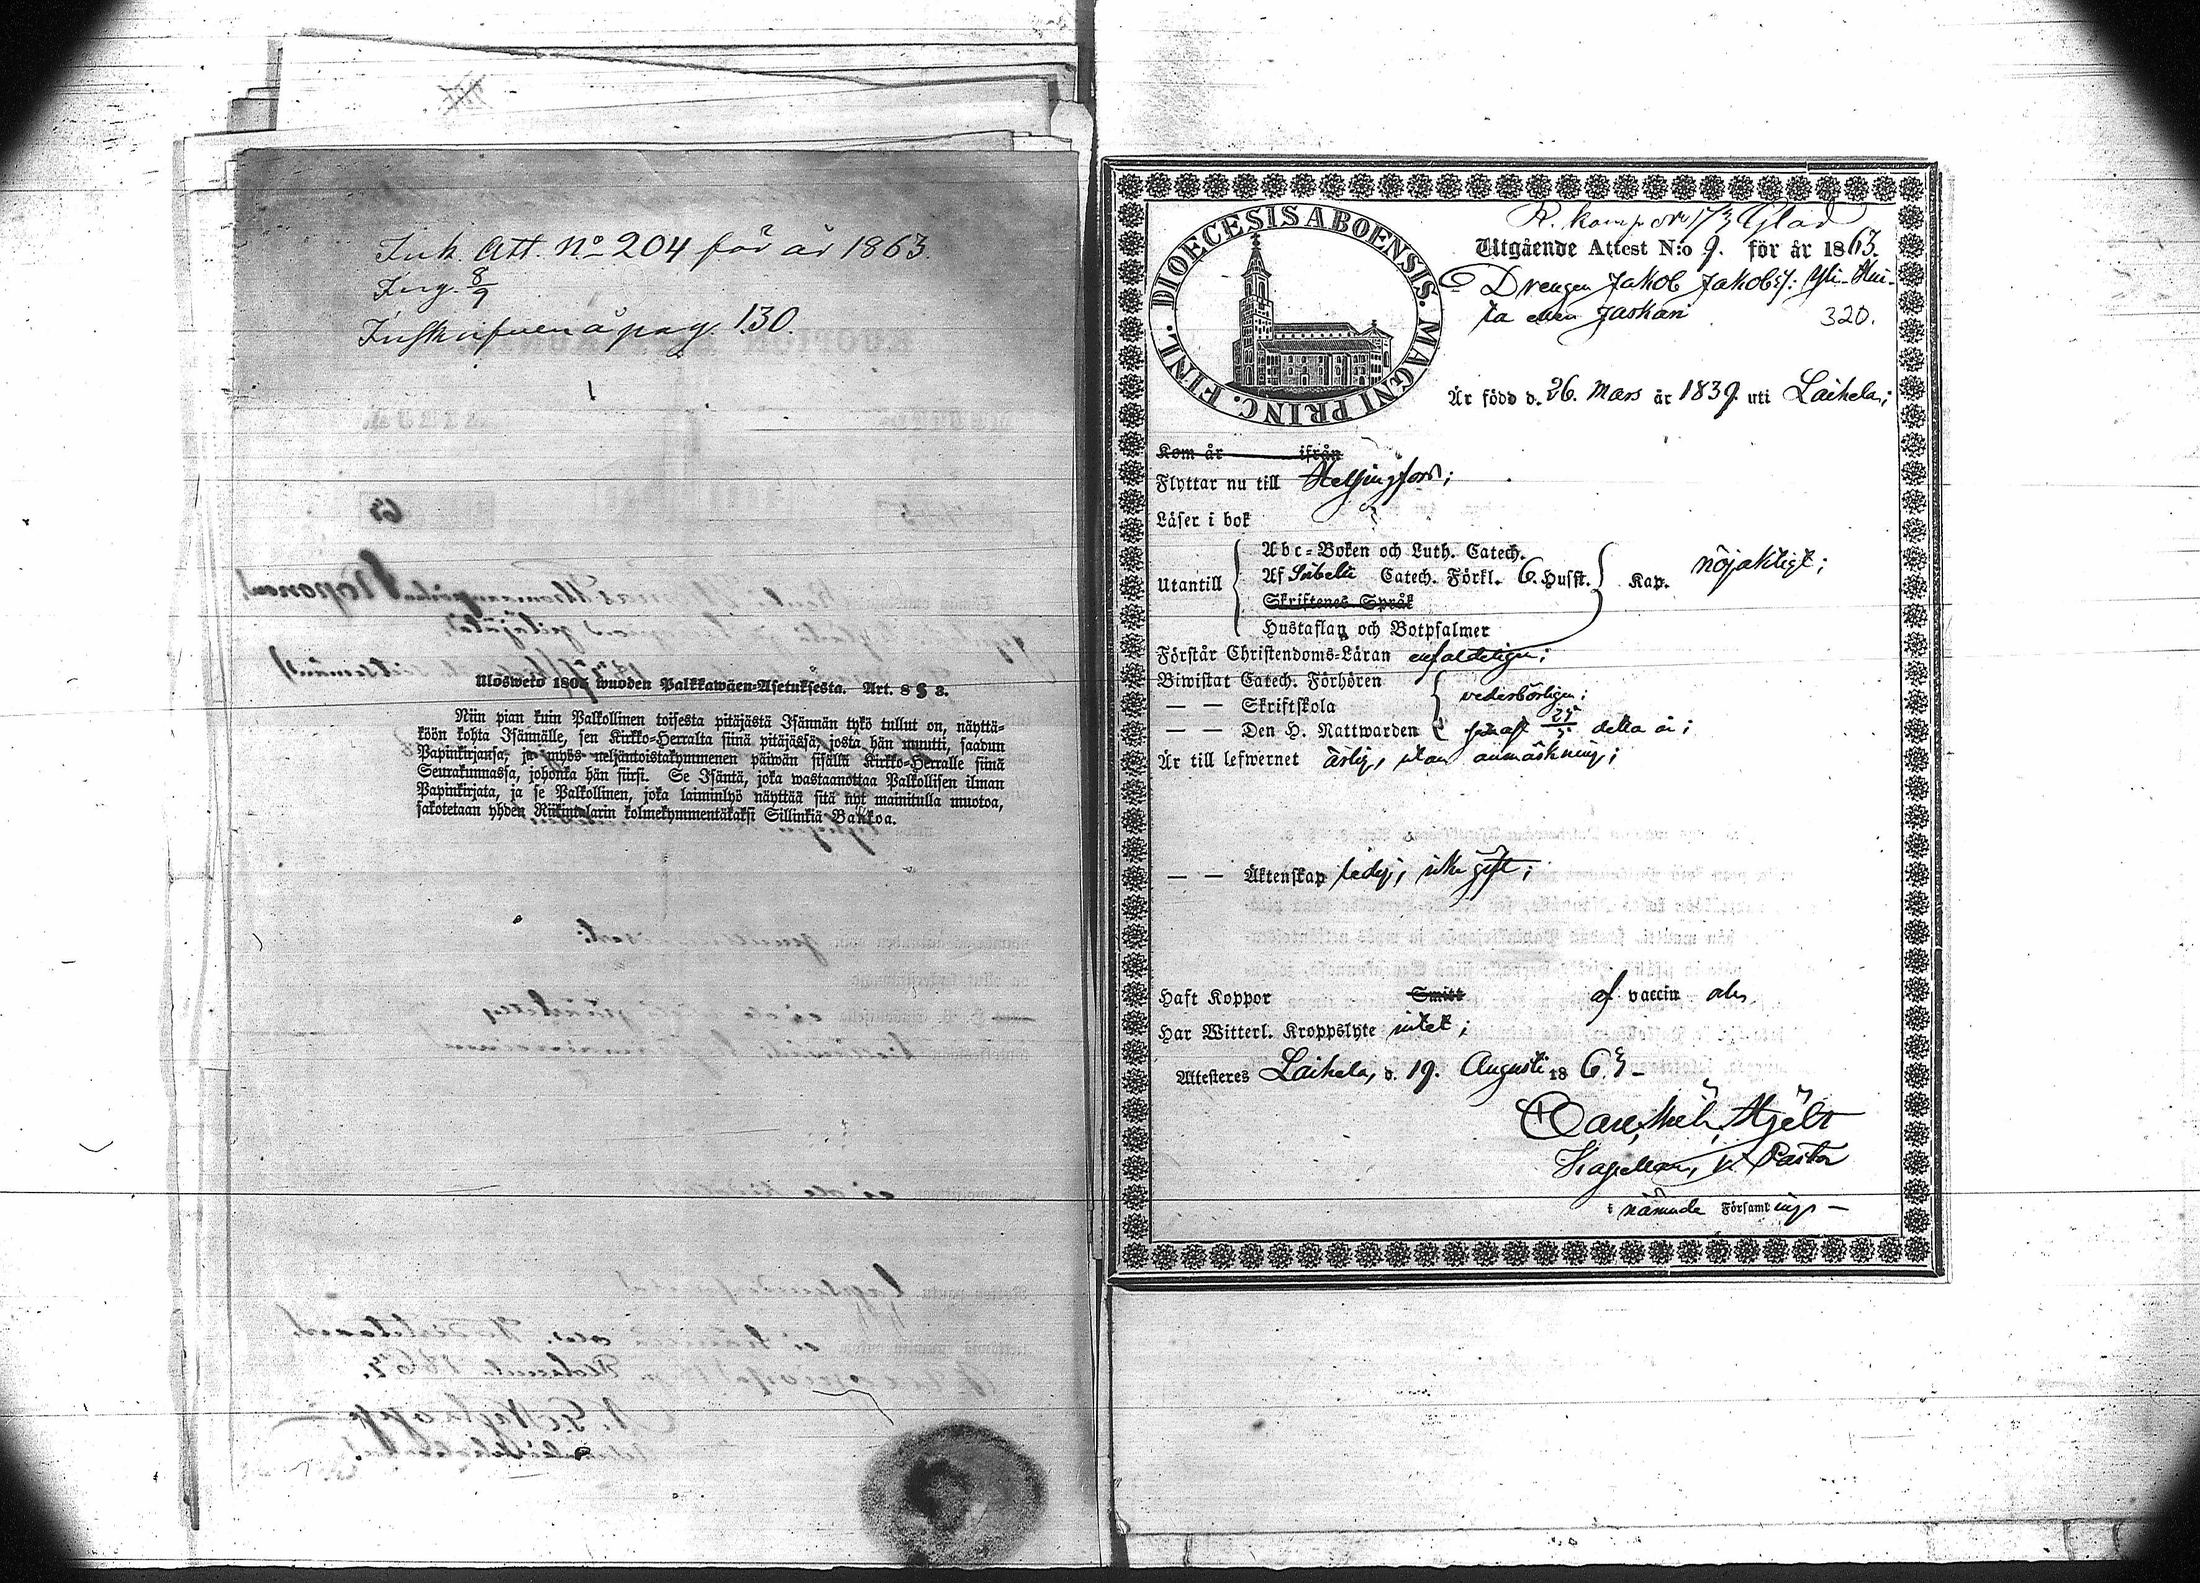 Ink. Att. No 204 för år 1863.
Ing. 8/9
Inskrifven å pag. 130.
Ulosweto 1805 wuoden Palkkawäen-Asetuksesta. Art. 8 § 3.
Niin pian kuin Palkollinen toisesta pitäjästä Isännän tykö tullut on, näyttä-
köön kohta Isännälle, sen Kirkko-Herralta siinä pitäjässä, josta hän muutti, saadun
Papinkirjansa, ja myös neljäntoistakymmenen päiwän sisällä Kirkko-Herralle siinä
Seurakunnassa, johonka hän siirsi. Se Isäntä, joka wastaanottaa Palkollisen ilman
Papinkirjata, ja se Palkollinen, joka laiminlyö näyttää sitä nyt mainitulla muotoa,
sakotetaan yhden Riikintalarin kolmekymmentäkaksi Sillinkiä Bankoa.
DIOECESIS ABOENSIS. MAGNI PRINC. FINL.
R. komp No 173 Glad
Utgående Attest N:o 9. för år 1863.
Drengen Jakob Jakobss: Yli-Hui-
ta eller Jaskari 320.
Är född d. 26. Mars år 1839. uti Laihela;
Kom år ifrån
Flyttar nu till Helsingfors;
Läser i bok
Utantill
Abc-Boken och Luth. Catech.
Af Svebelii Catech. Förkl. 6. Husst. Kap. nöjaktigt;
Skriftenes Språk
Hustaflan och Botpsalmer
Förstår Christendoms-Läran enfaldeligen;
Biwistat Catech. Förhören
— — Skriftskola vederbörligen;
— — Den H. Nattwarden detta år;
Är till lefwernet ärlig, utan anmärkning;
— — Äktenskap ledig, icke gift;
Haft Koppor Smitt af vaccin
Har Witterl. Kroppslyte intet;
Attesteras Laihela, d. 19. Augusti 1863 —
Carl Mich. Hjelt
Kapellan, v. Pastor
i nämnda Församling —